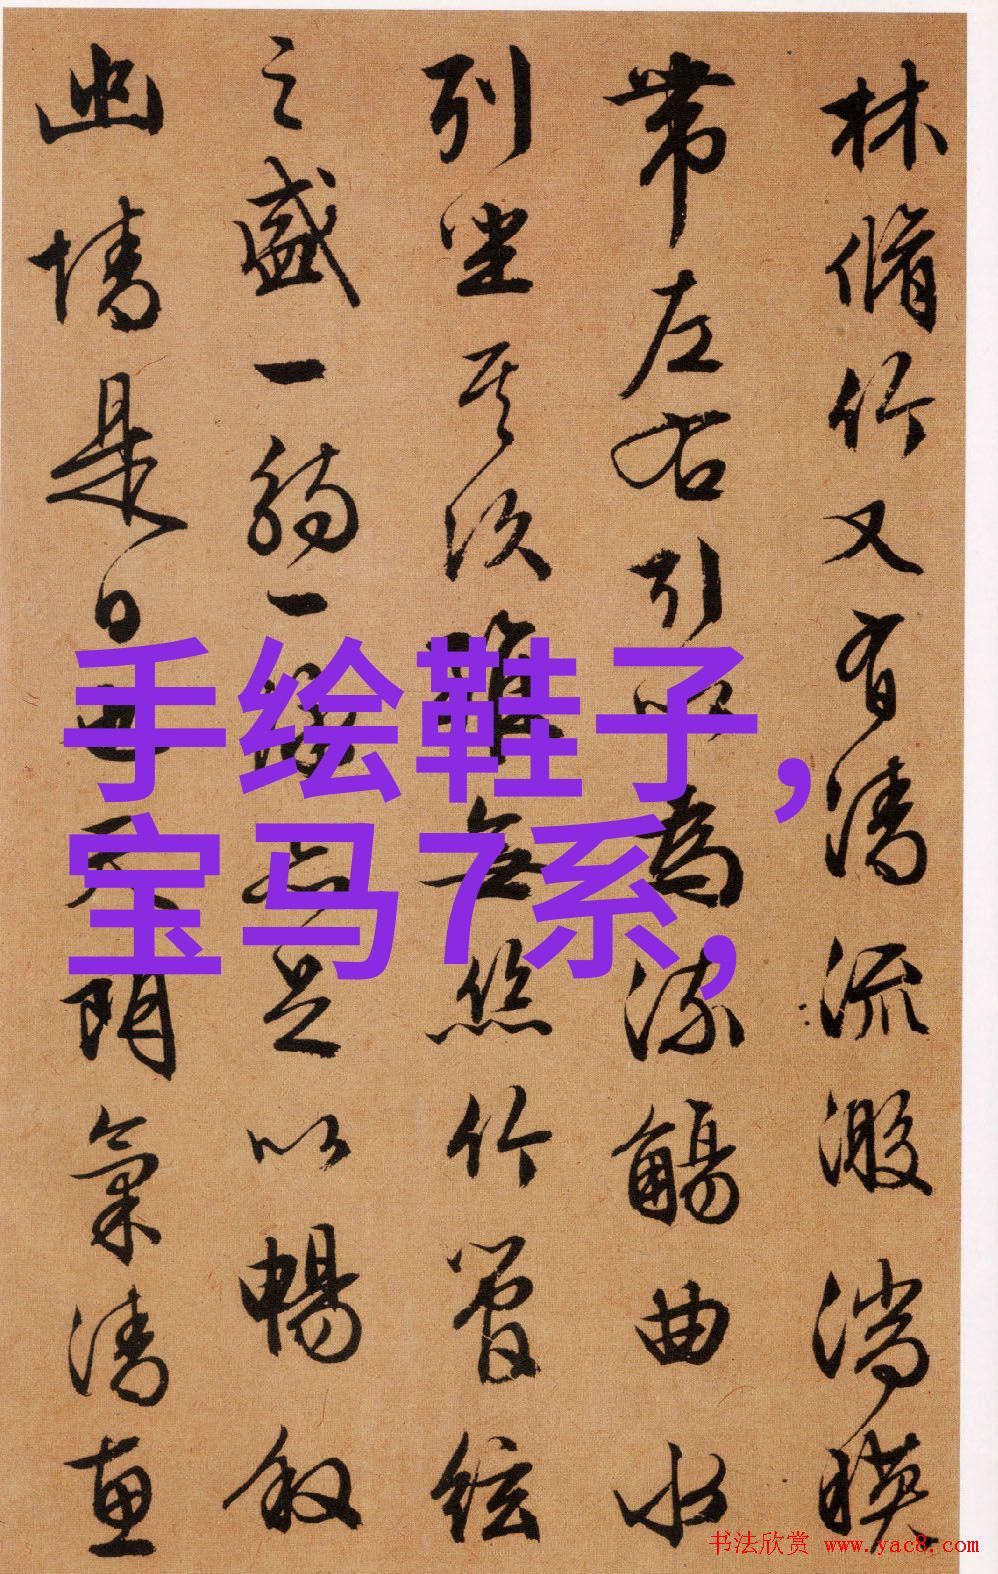 林脩竹又有清流激湍暎
帶左右引以為流觴曲水
列坐其次雖無絲竹管絃
之盛一觴一詠亦足以暢叙
幽情是日也天朗氣清惠
手绘鞋子，
宝马7系，
书法欣赏 www.yac8.com